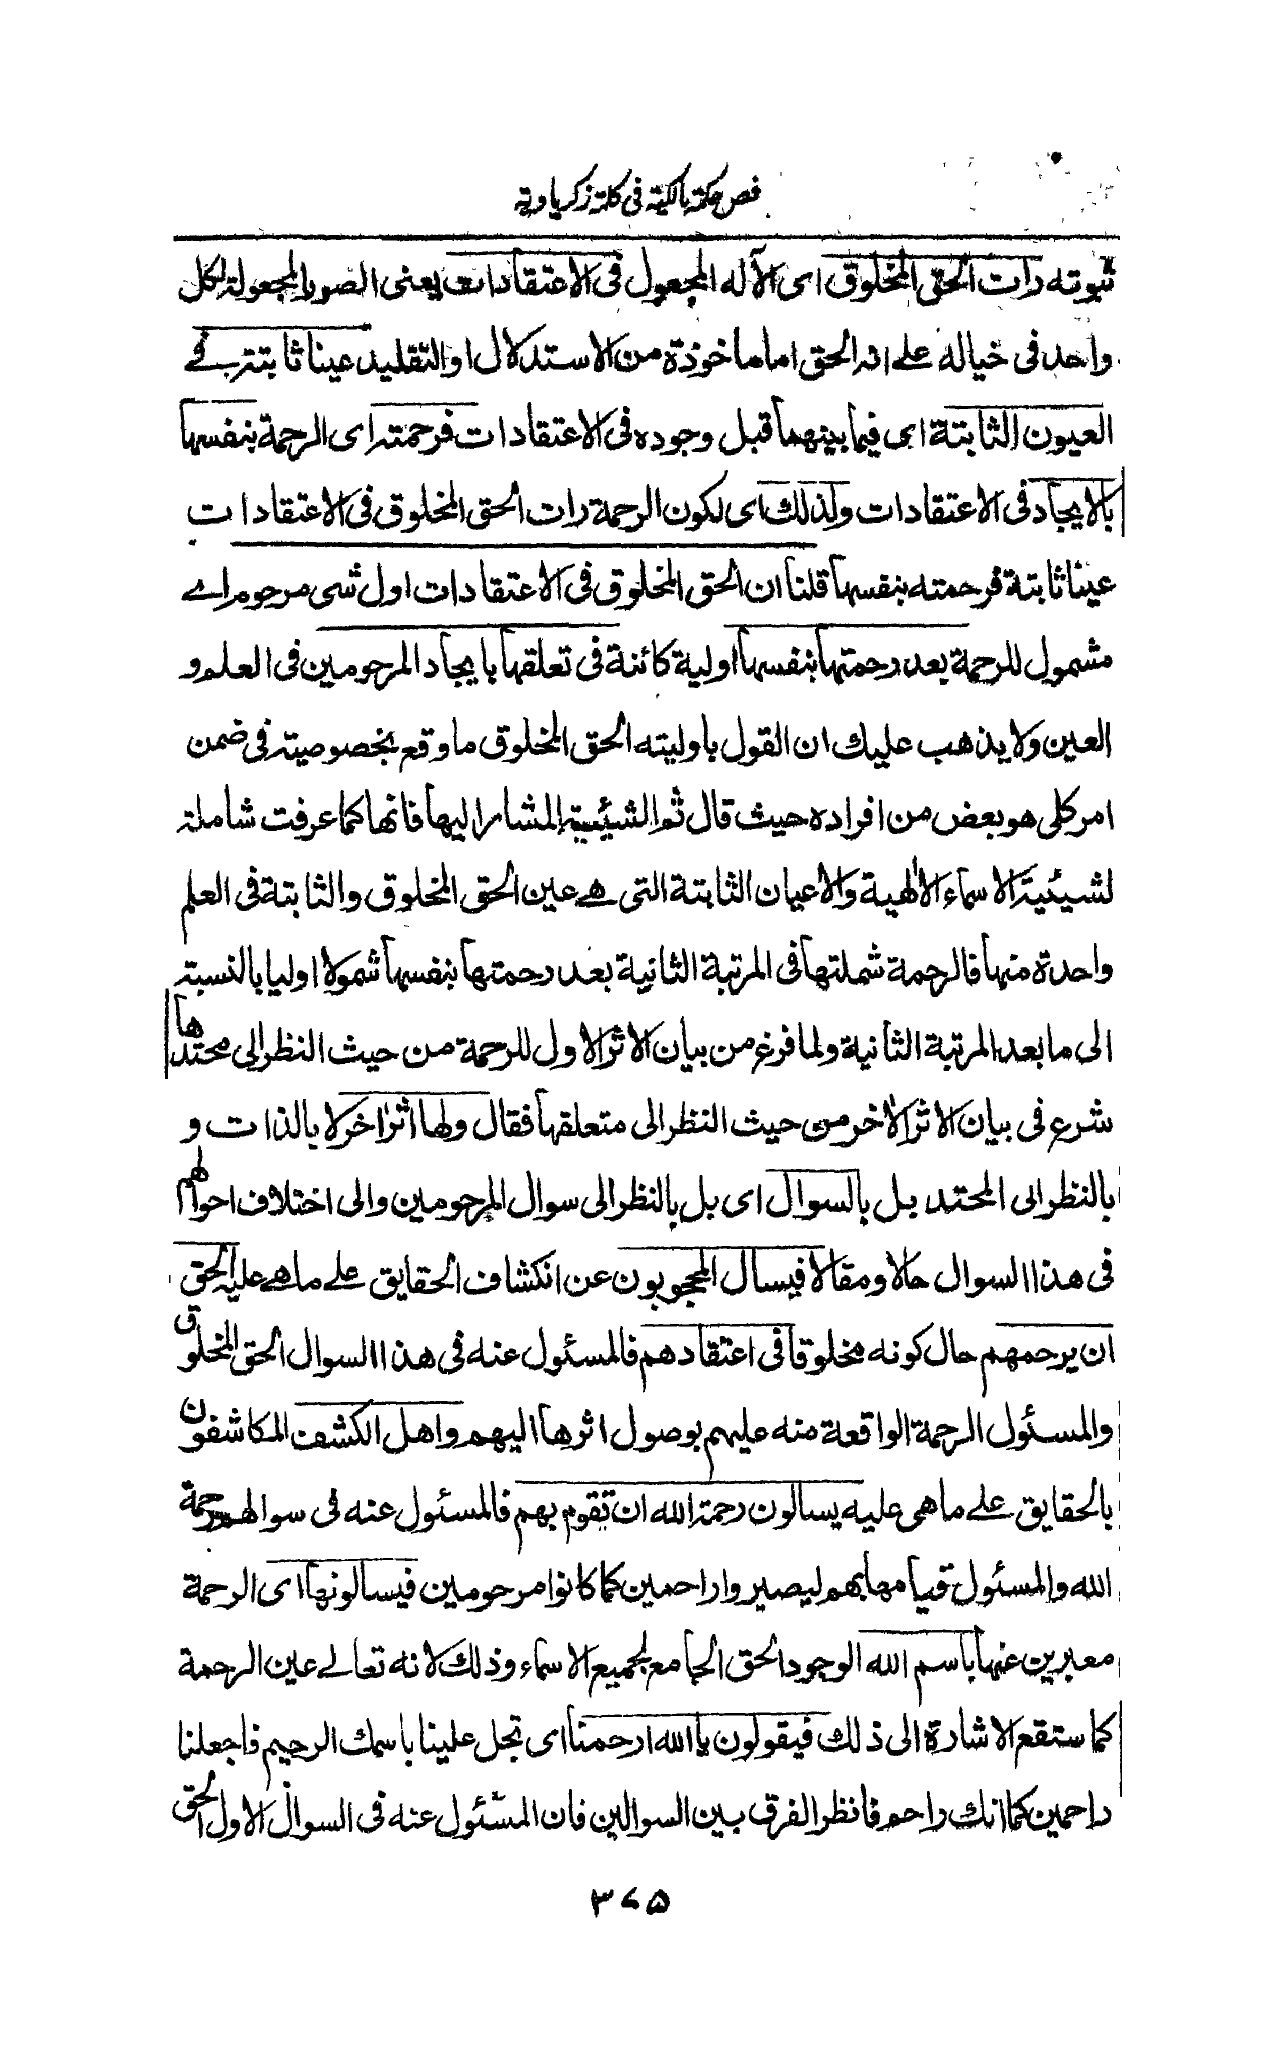 فص حكمة مالكية فى كلمة زكرياوية
ثبوته رات الحق المخلوق اى الآله المجعول فى الاعتقادات يعنى الصور المجعولة لكل
واحد فى خياله على انه الحق اما ماخوذة من الاستدلال او التقليد عينا ثابتة فى
العيون الثابتة اى فيما بينهما قبل وجوده فى الاعتقادات فرحمته اى الرحمة بنفسها
بالايجاد فى الاعتقادات ولذلك اى لكون الرحمة رات الحق المخلوق فى الاعتقادات
عينا ثابتة فرحمته بنفسها قلنا ان الحق المخلوق فى الاعتقادات اول شىء مرحوم اے
مشمول للرحمة بعد رحمتها بنفسها اولية كائنة فى تعلقها بايجاد المرحومين فى العلم و
العين ولا يذهب عليك ان القول باوليته الحق المخلوق ما وقع بخصوصيته فى ضمن
امر كلى هو بعض من افراده حيث قال ثم الشيئية المشار اليها فانها كما عرفت شاملة
لشيئية الاسماء الالهية والاعيان الثابتة التى هے عين الحق المخلوق والثابتة فى العلم
واحدة منها فالرحمة شملتها فى المرتبة الثانية بعد رحمتها بنفسها شمولا اوليا بالنسبة
الى ما بعد المرتبة الثانية ولما فرغ من بيان الاثر الاول للرحمة من حيث النظر الى محتدها
شرع فى بيان الاثر الاخر من حيث النظر الى متعلقها فقال ولها اثر اخر لا بالذات و
بالنظر الى المحتد بل بالسوال اى بل بالنظر الى سوال المرحومين والى اختلاف احوالهم
فى هذا السوال حالا ومقالا فيسال المحجوبون عن انكشاف الحقايق على ما هے عليه الحق
ان يرحمهم حال كونه مخلوقا فى اعتقادهم فالمسئول عنه فى هذا السوال الحق المخلوق
والمسئول الرحمة الواقعة منه عليهم بوصول اثرها اليهم واهل الكشف المكاشفون
بالحقايق على ما هى عليه يسالون رحمة الله ان تقوم بهم فالمسئول عنه فى سوالهم رحمة
الله والمسئول قيامها بهم ليصيروا راحمين كما كانوا مرحومين فيسالونها اى الرحمة
معبرين عنها باسم الله الوجود الحق الجامع لجميع الاسماء وذلك لانه تعالى عين الرحمة
كما ستقع الاشارة الى ذلك فيقولون يا الله ارحمنا اى تجل علينا باسمك الرحيم فاجعلنا
راحمين كما انك راحم فانظر الفرق بين السوالين فان المسئول عنه فى السوال الاول الحق
۳۷۵